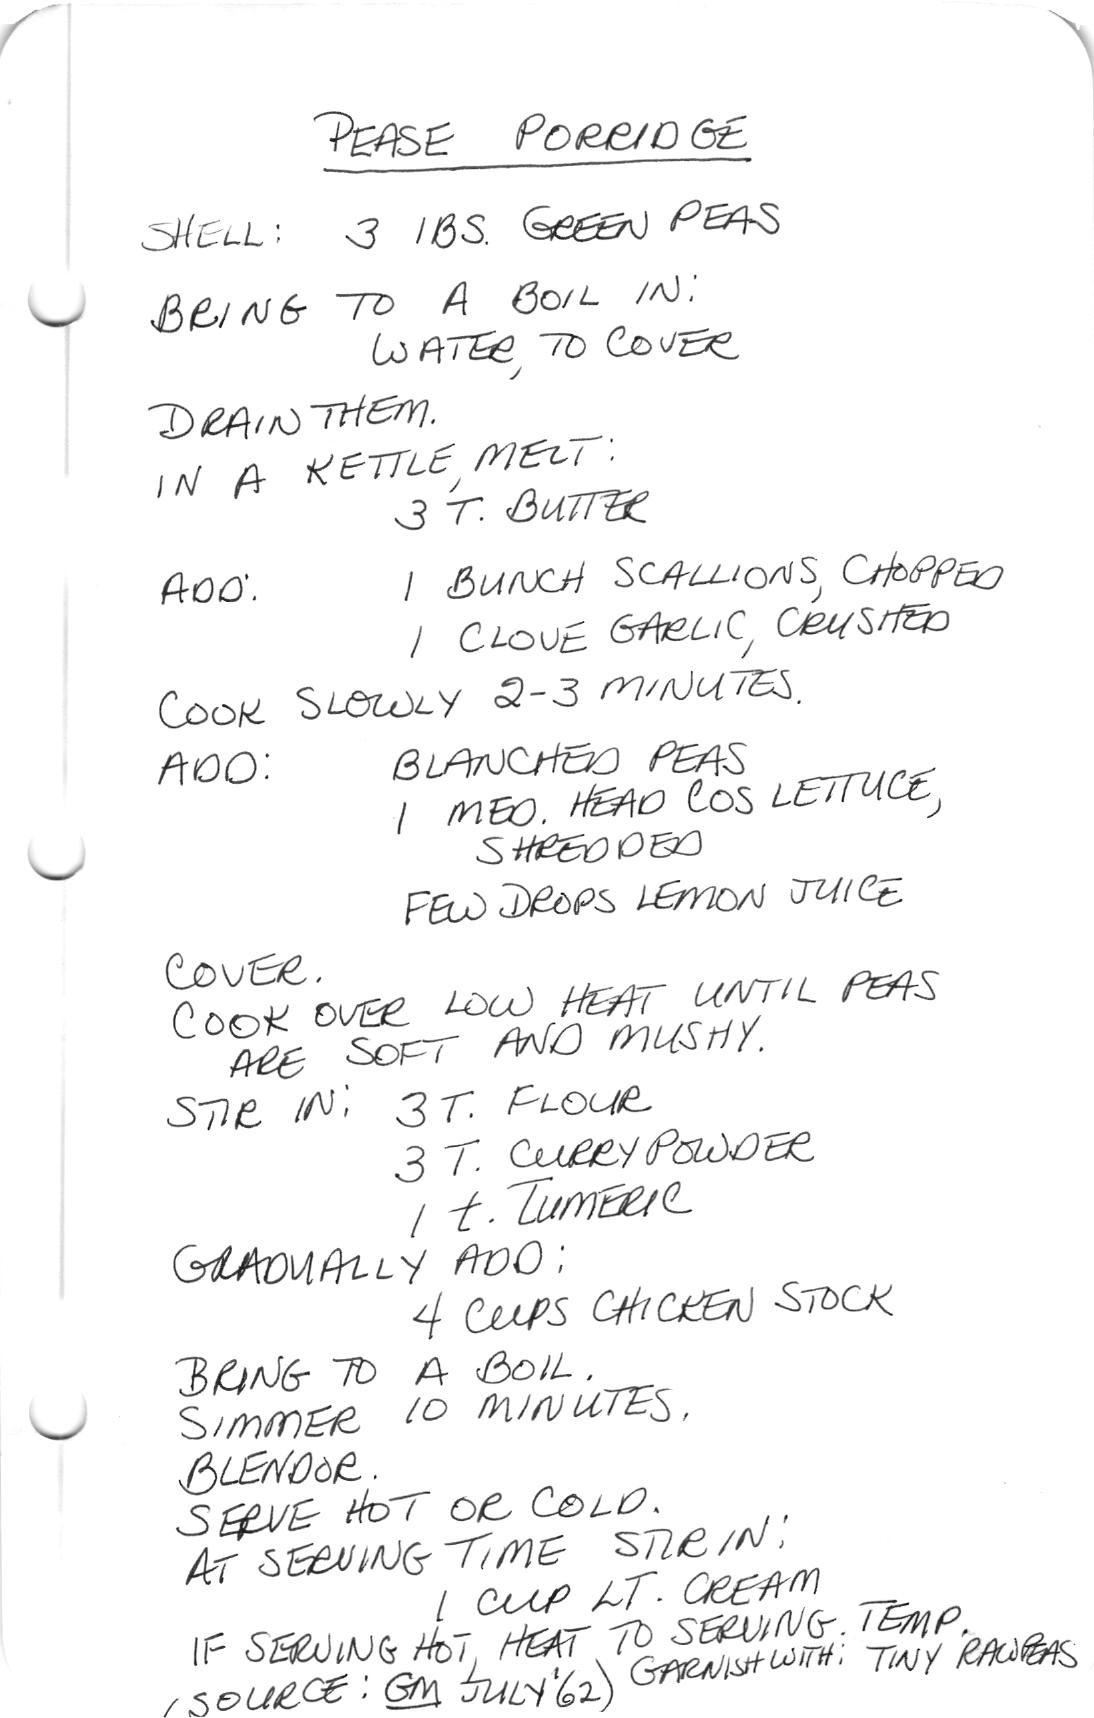 PEASE PORRIDGE
SHELL: 3 lBS. GREEN PEAS
BRING TO A BOIL IN:
WATER, TO COVER
DRAIN THEM.
IN A KETTLE, MELT:
3 T. BUTTER
ADD: 1 BUNCH SCALLIONS, CHOPPED
1 CLOVE GARLIC, CRUSHED
COOK SLOWLY 2-3 MINUTES.
ADD: BLANCHED PEAS
1 MED. HEAD COS LETTUCE,
SHREDDED
FEW DROPS LEMON JUICE
COVER.
COOK OVER LOW HEAT UNTIL PEAS
ARE SOFT AND MUSHY.
STIR IN: 3 T. FLOUR
3 T. CURRY POWDER
1 t. TUMERIC
GRADUALLY ADD:
4 CUPS CHICKEN STOCK
BRING TO A BOIL.
SIMMER 10 MINUTES.
BLENDOR.
SERVE HOT OR COLD.
AT SERVING TIME STIR IN:
1 CUP LT. CREAM
IF SERVING HOT, HEAT TO SERVING TEMP.
(SOURCE: GM JULY '62) GARNISH WITH: TINY RAW PEAS